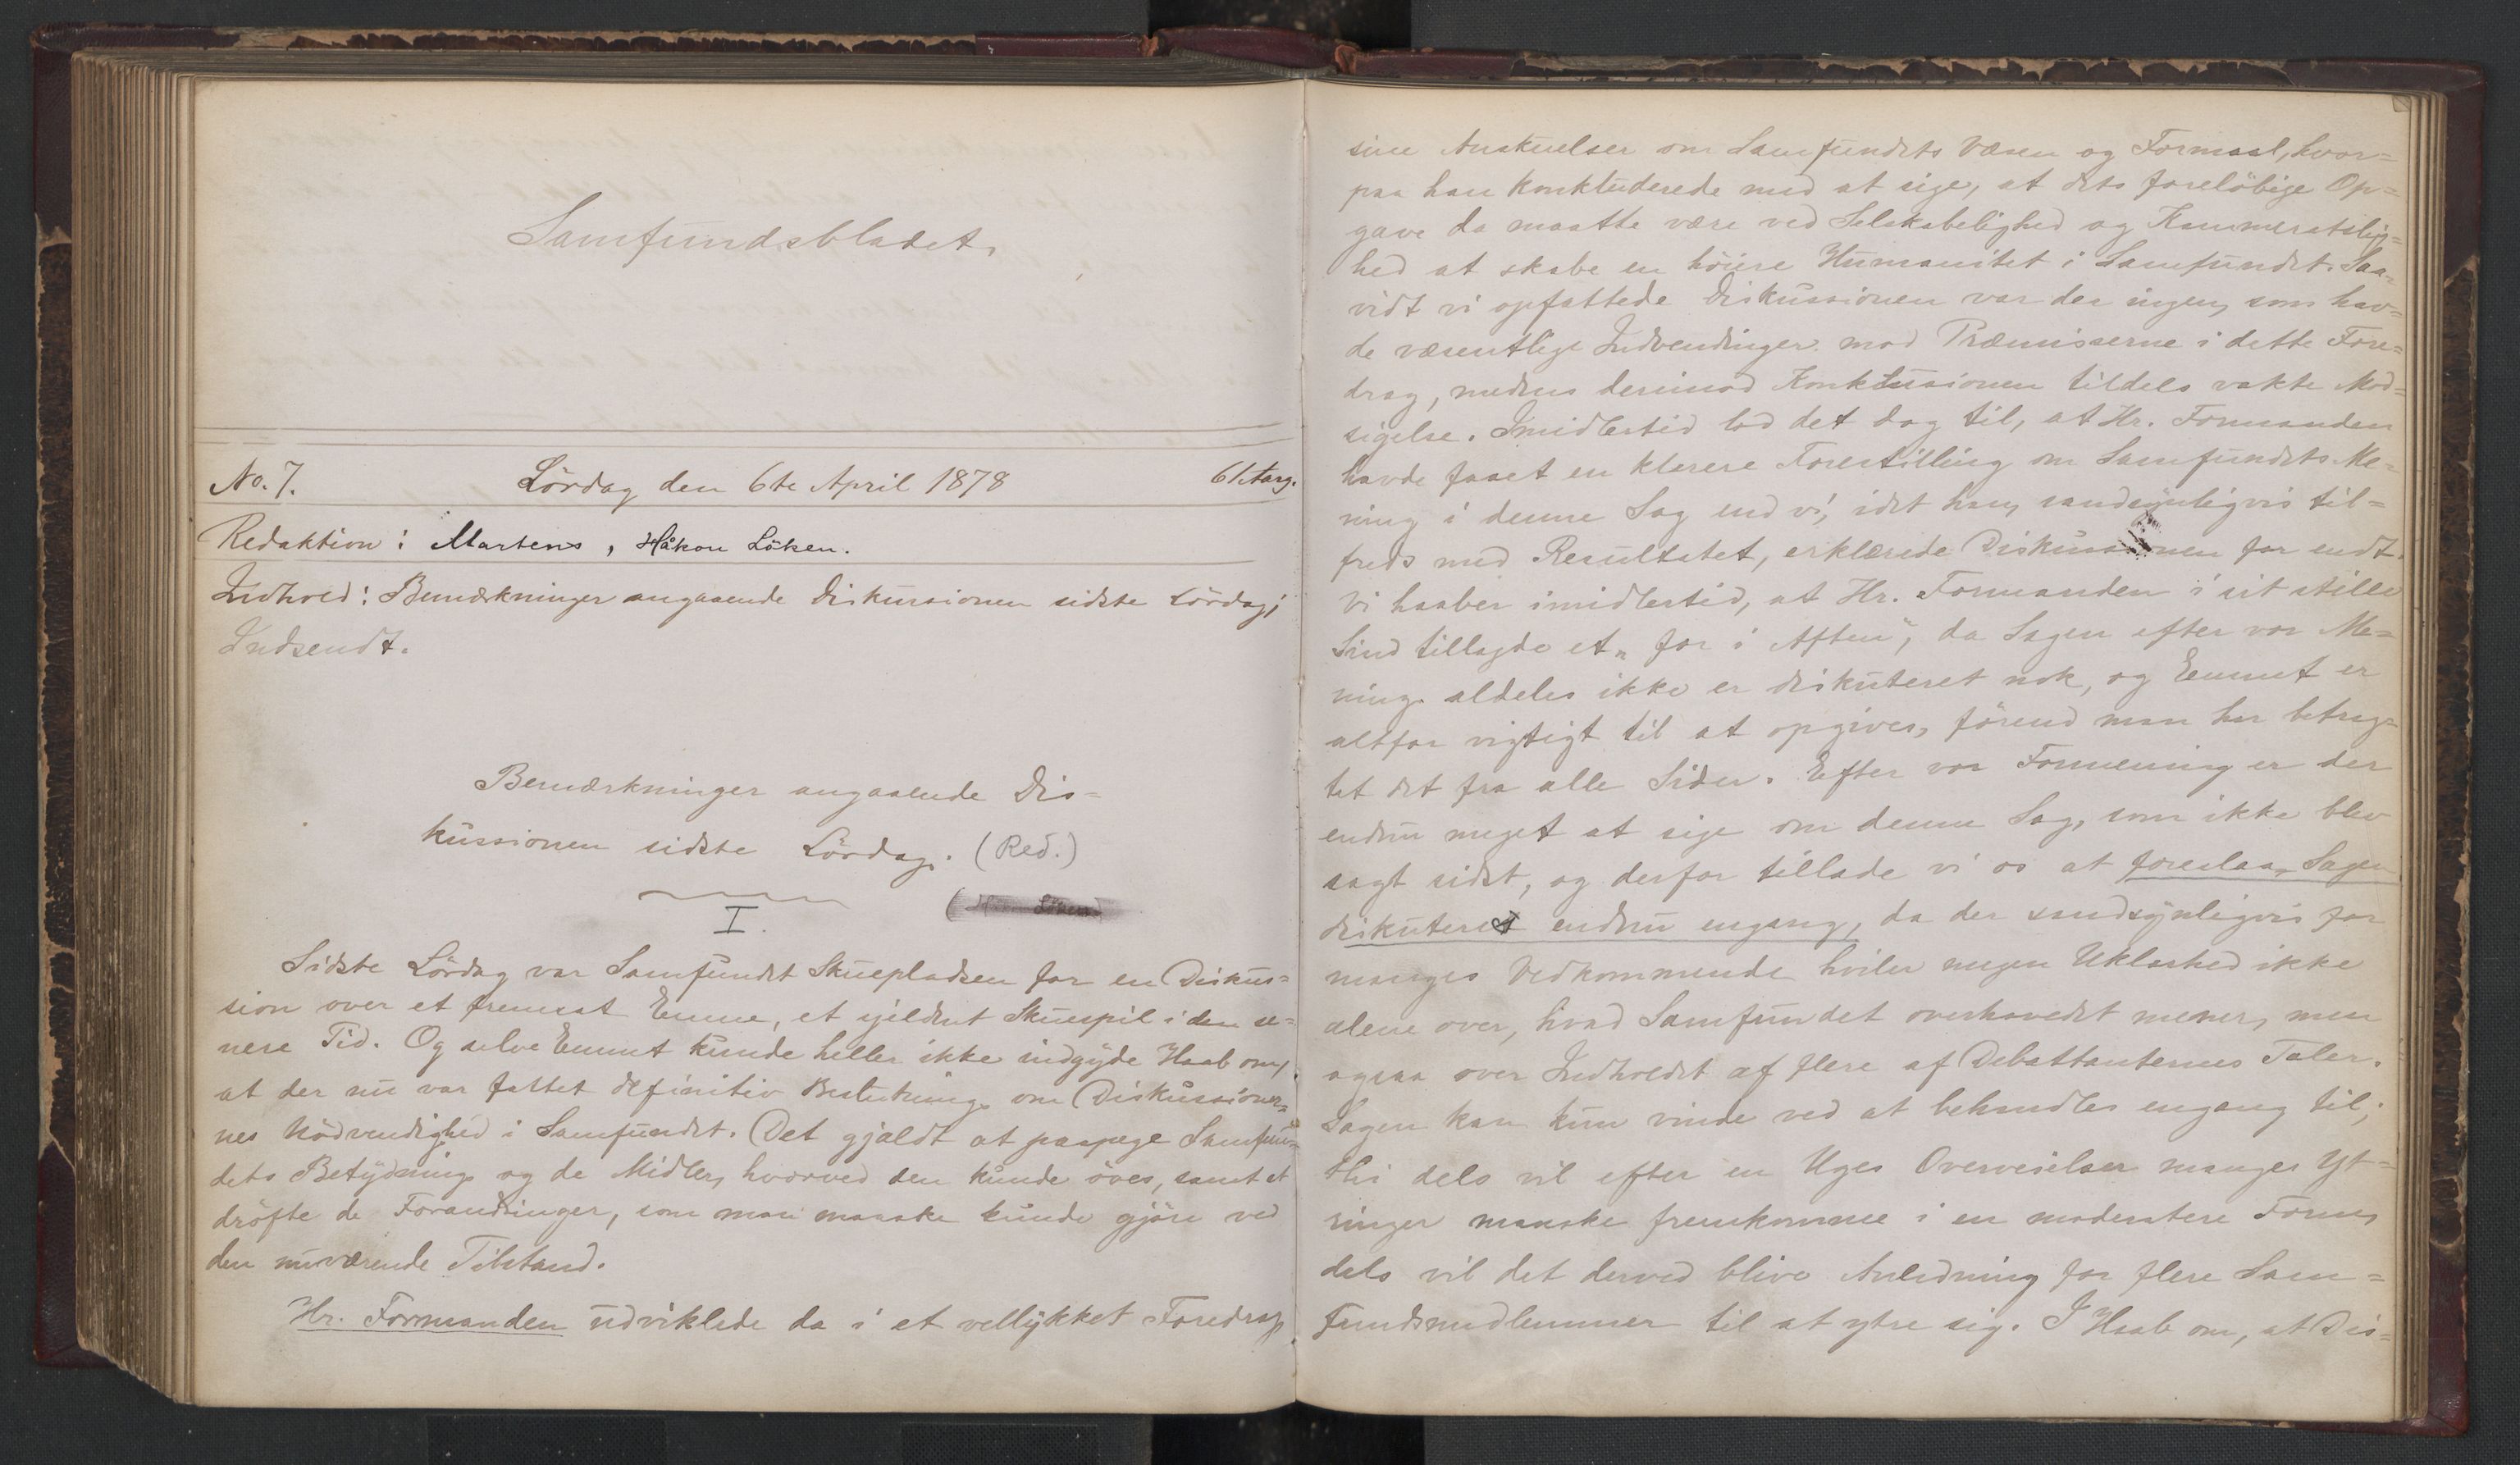 Samfundsbladet.
No. 7. Lördag den 6te April 1878 61 Aarg.
Redaktion: Martens, Håkon Löken.
Indhold: Bemærkninger angaaende Diskussionen sidste Lördag;
Indsendt.
Bemærkninger angaaende Dis=
kussionen sidste Lördag. (Red.)
I.
Sidste Lördag var Samfundet Skuepladsen for en Diskus=
sion over et fremsat Emne, et sjeldent Skuespil i den se=
nere Tid. Og selve Emnet kunde heller ikke indgyde Haab om,
at der nu var fattet definitiv Beslutning om Diskussioner=
nes Nödvendighed i Samfundet. Det gjaldt at paapege Samfun=
dets Betydning og de Midler, hvorved den kunde öves, samt at
dröfte de Forandringer, som man maaske kunde gjöre ved
den nuværende Tilstand.
Hr. Formanden udviklede da i et vellykket Foredrag
sine Anskuelser om Samfundets Væsen og Formaal, hvor=
paa han konkluderede med at sige, at dets foreløbige Op=
gave da maatte være ved Selskabelighed og Kammeratslig=
hed at skabe en höiere Humanitet i Samfundet. Saa=
vidt vi opfattede Diskussionen var der ingen, som hav=
de væsentlige Indvendinger mod Præmisserne i dette Fore=
drag, medens derimod Konklusionen tildels vakte Mod=
sigelse. Imidlertid lod det dog til, at Hr. Formanden
havde faaet en klarere Forestilling om Samfundets Me=
ning i denne Sag end vi, idet han, sandsynligvis til=
freds med Resultatet, erklærede Diskussionen for endt.
Vi haaber imidlertid, at Hr. Formanden i sit stille
Sind tillagde et „for i Aften", da Sagen efter vor Me=
ning aldeles ikke er diskuteret nok, og Emnet er
altfor vigtigt til at opgives, förend man har betrag=
tet det fra alle Sider. Efter vor Formening er der
endnu meget at sige om denne Sag, som ikke blev
sagt sidst, og derfor tillade vi os at foreslaa, Sagen
diskuteret endnu engang, da der sandsynligvis for
manges Vedkommende hviler megen Uklarhed ikke
alene over, hvad Samfundet overhovedet mener, men
ogsaa over Indholdet af flere af Debattanternes Taler.
Sagen kan kun vinde ved at behandles engang til;
thi dels vil efter en Uges Overveielser manges Yt=
ringer maaske fremkomme i en moderatere Form,
dels vil det derved blive Anledning for flere Sam=
fundsmedlemmer til at ytre sig. I Haab om, at Dis=